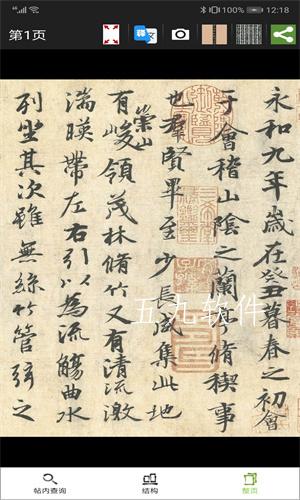 12:18
第1页
永和九年歲在癸丑暮春之初會
于會稽山陰之蘭亭脩稧事
也羣賢畢至少長咸集此地
有崇山峻領茂林脩竹又有清流激
湍暎帶左右引以為流觴曲水
列坐其次雖無絲竹管弦之
五九软件
帖内查询
结构
整页